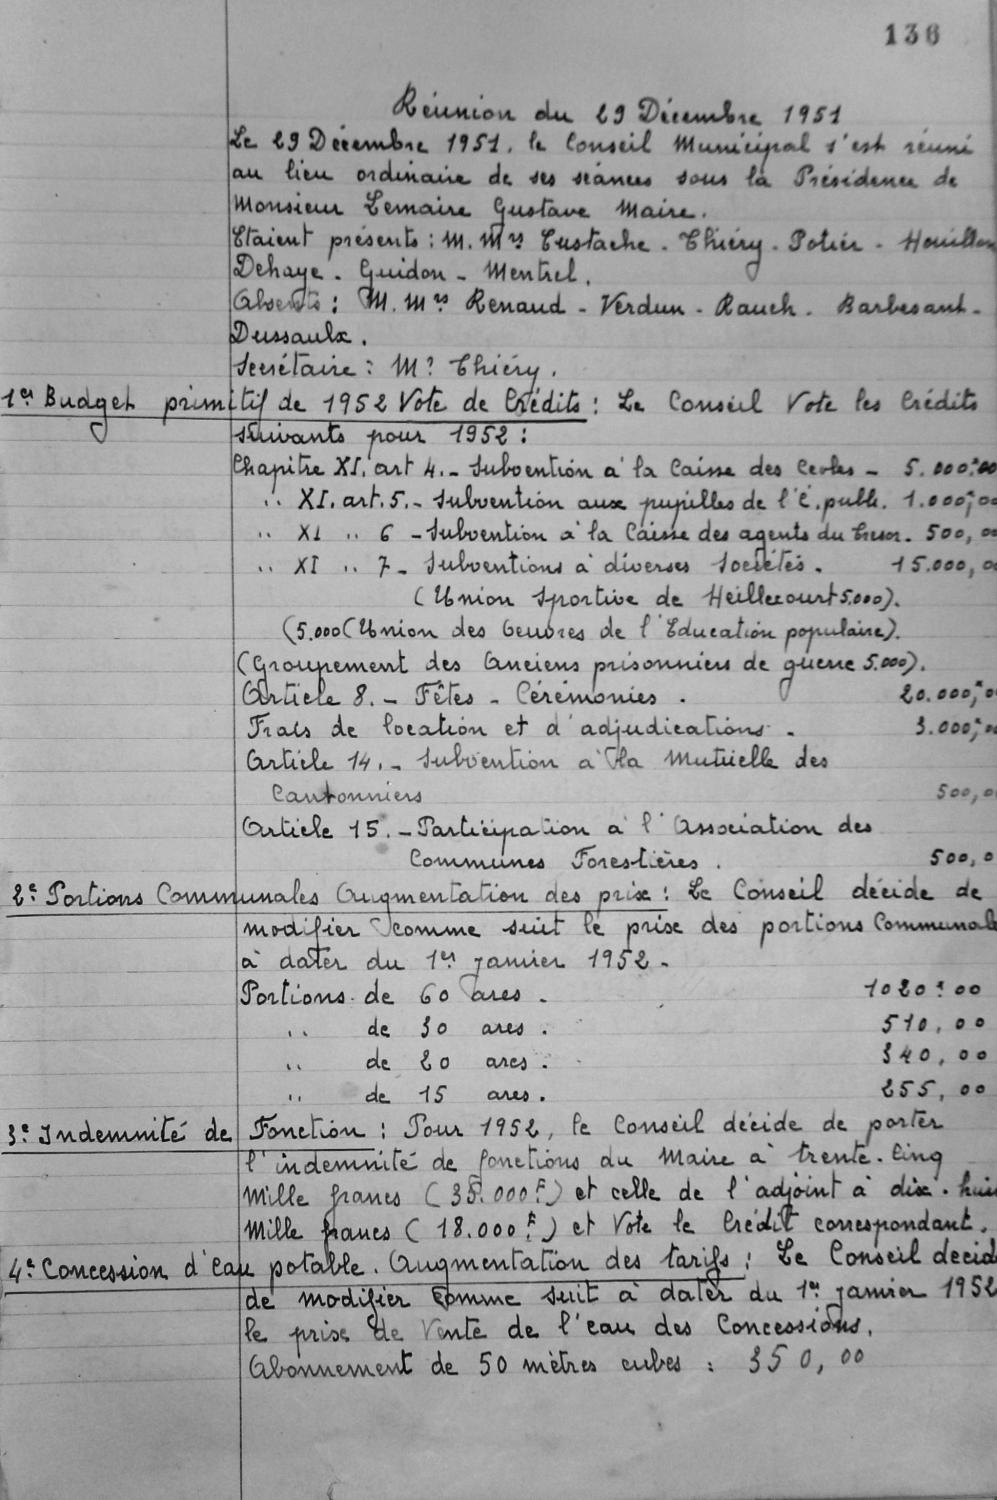 136
Réunion du 29 Décembre 1951
Le 29 Décembre 1951, le Conseil Municipal s'est réuni
au lieu ordinaire de ses séances sous la Présidence de
Monsieur Lemaire Gustave Maire.
Etaient présents : M. Mrs Eustache - Thiéry - Potier - Houillon
Dehaye - Guidon - Mentrel.
Absents : M. Mrs Renaud - Verdun - Rauch - Barbesant -
Dussaulx.
Secrétaire : Mr Thiéry.
1er Budget primitif de 1952 Vote de Crédits : Le Conseil Vote les Crédits
suivants pour 1952 :
Chapitre XI. art 4. - Subvention à la Caisse des Ecoles - 5.000F00
" XI. art. 5. - Subvention aux pupilles de l'É. publ. 1.000F,00
" XI " 6 - Subvention à la Caisse des agents du Trésor. 500,00
" XI " 7 - Subventions à diverses Sociétés. 15.000,00
(Union Sportive de Heillecourt 5.000).
(5.000 (Union des Oeuvres de l'Education populaire).
(Groupement des Anciens prisonniers de guerre 5.000).
Article 8. - Fêtes - Cérémonies. 20.000F,00
Frais de location et d'adjudications. 3.000F,00
Article 14. - Subvention à la Mutuelle des
Cantonniers 500,0
Article 15. - Participation à l'Association des
Communes Forestières. 500,0
2e Portions Communales Augmentation des prix : Le Conseil décide de
modifier comme suit le prix des portions Communale
à dater du 1er Janvier 1952.
Portions de 60 ares. 1020F00
" de 30 ares. 510,00
" de 20 ares. 340,00
" de 15 ares. 255,00
3e Indemnité de Fonction : Pour 1952, le Conseil décide de porter
l'indemnité de fonctions du Maire à trente-Cinq
Mille francs (35.000F) et celle de l'adjoint à dix-hui
Mille francs (18.000F) et Vote le Crédit correspondant.
4e Concession d'Eau potable. Augmentation des tarifs : Le Conseil decid
de modifier comme suit à dater du 1er Janvier 1952
le prix de Vente de l'eau des Concessions.
Abonnement de 50 mètres cubes : 350,00